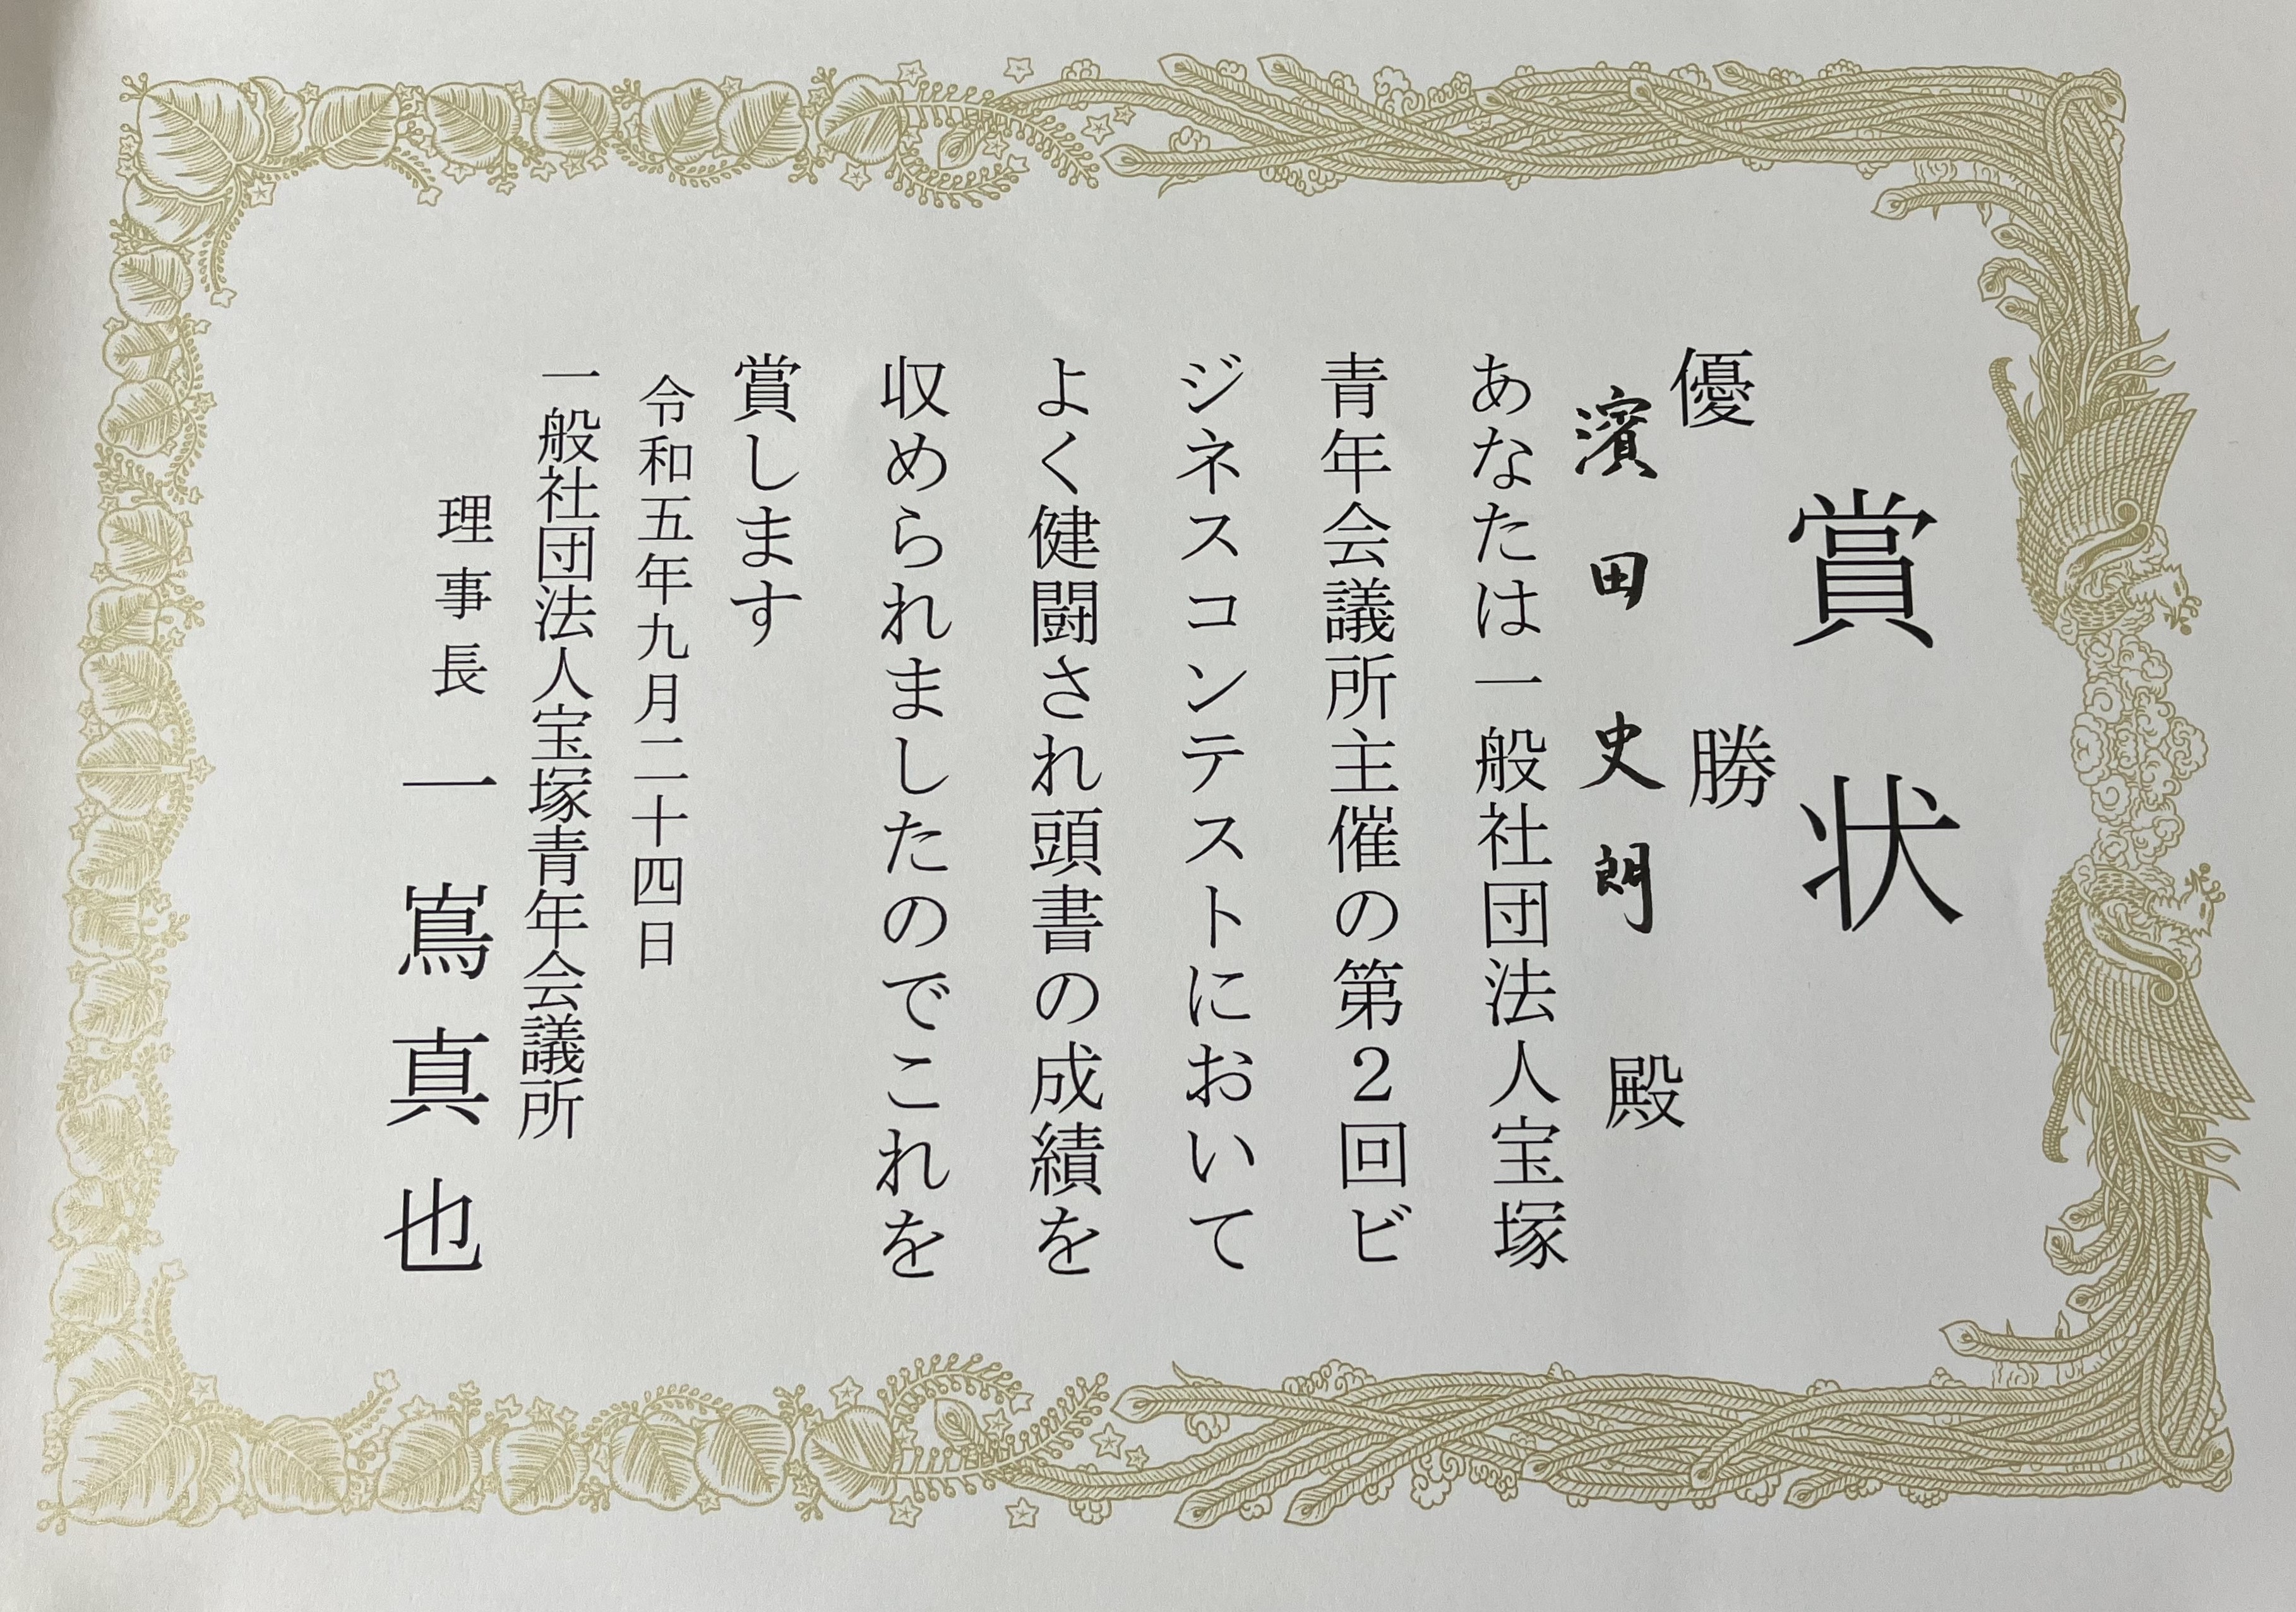 賞状
優勝
濱田史朗 殿
あなたは一般社団法人宝塚
青年会議所主催の第2回ビ
ジネスコンテストにおいて
よく健闘され頭書の成績を
収められましたのでこれを
賞します
令和五年九月二十四日
一般社団法人宝塚青年会議所
理事長 一嶌真也